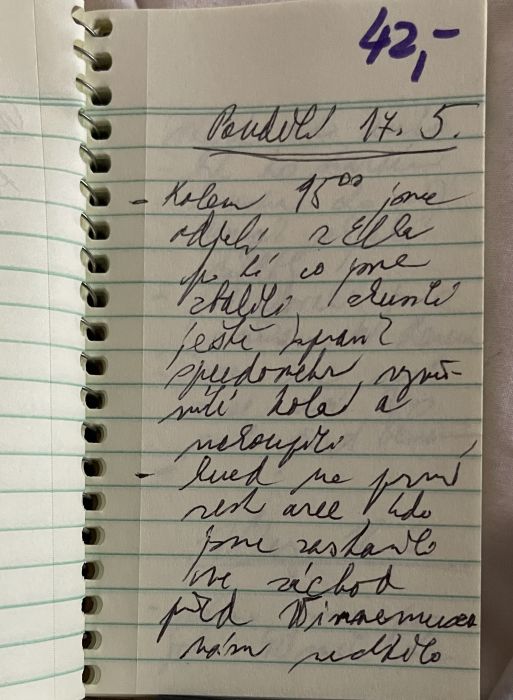 42,-
Pondělí 17. 5.
- Kolem 15⁰⁰ jsme
odjeli z Elka
po té co jsme
zbalili, skusili
ještě spravit
speedometr, vymě-
nili kola a
nakoupili
- hned na první
rest aree kde
jsme zastavili
na záchod
před Winnemucca
nám nedržilo